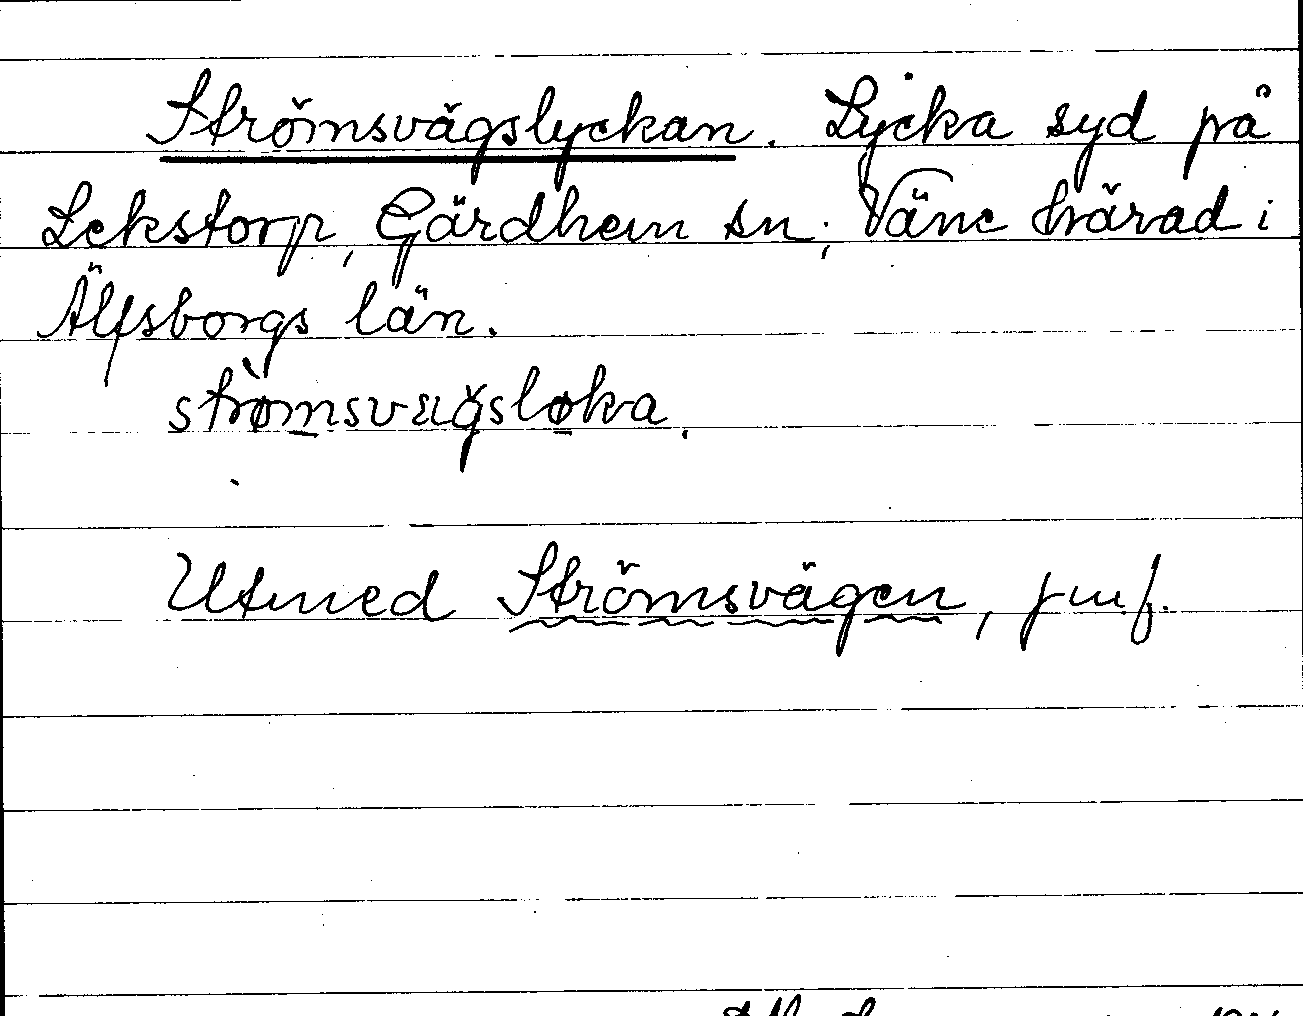 Strömsvägslyckan. Lycka syd på
Lekstorp, Gärdhem sn; Väne härad i
Älfsborgs län.
strømsvägsløka.
Utmed Strömsvägen, jmf.